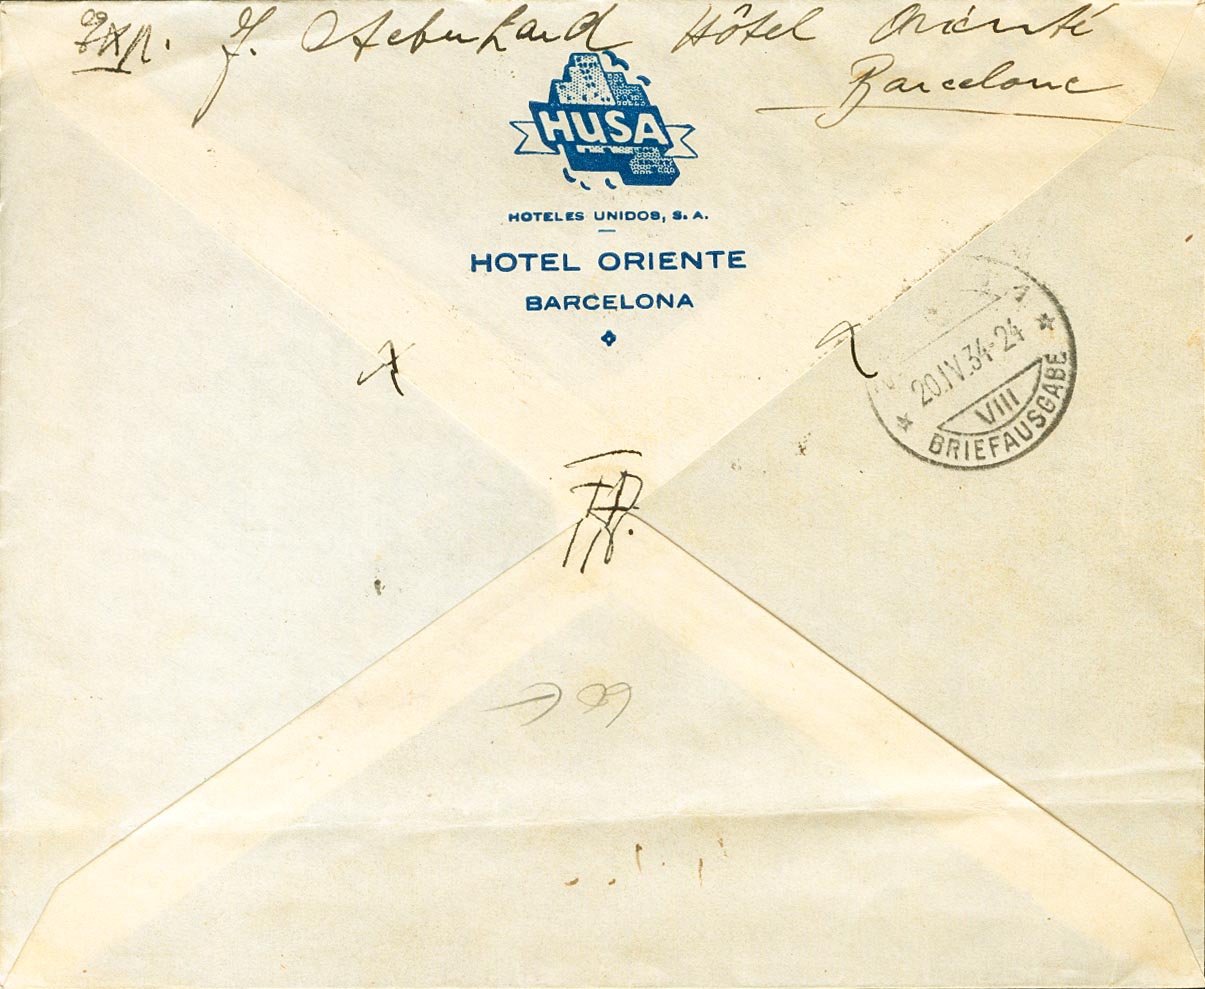 Exp. J. Aeberhard Hôtel Oriente
Barcelone
HUSA
HOTELES UNIDOS, S. A.
HOTEL ORIENTE
BARCELONA
20.IV.34-24
VIII
BRIEFAUSGABE